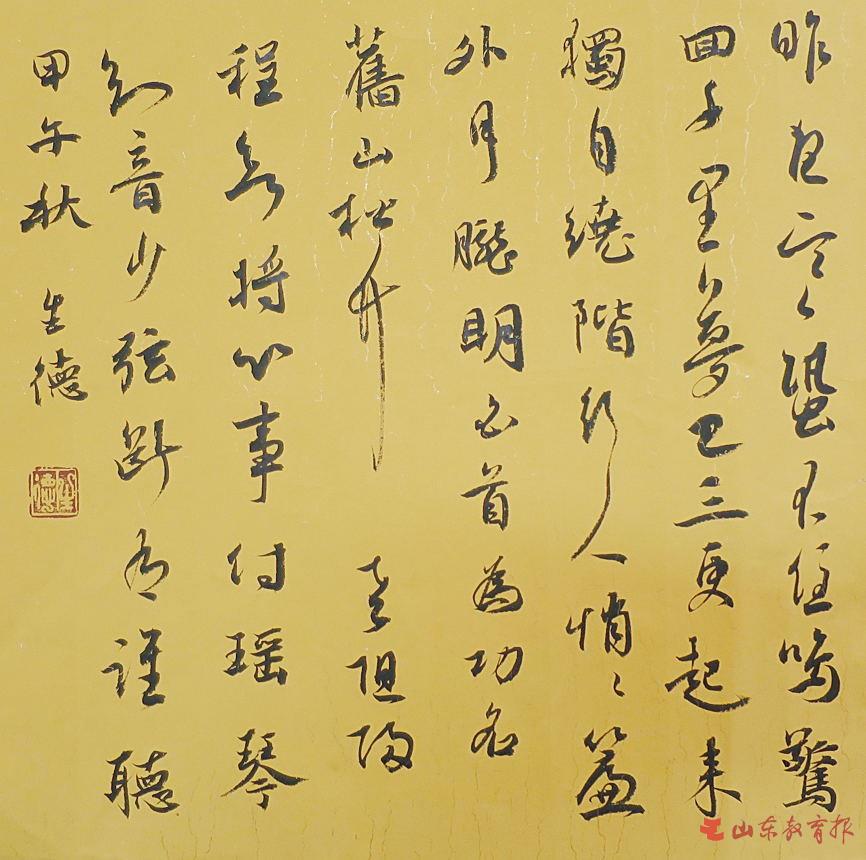 昨夜寒〻蛩不住鳴驚
回千里夢已三更起来
獨自繞階行人悄〻簾
外月朧明白首為功名
舊山松竹 老阻歸
程欲将心事付瑶琴
知音少弦斷有誰聽
甲午秋 生德
山东教育报